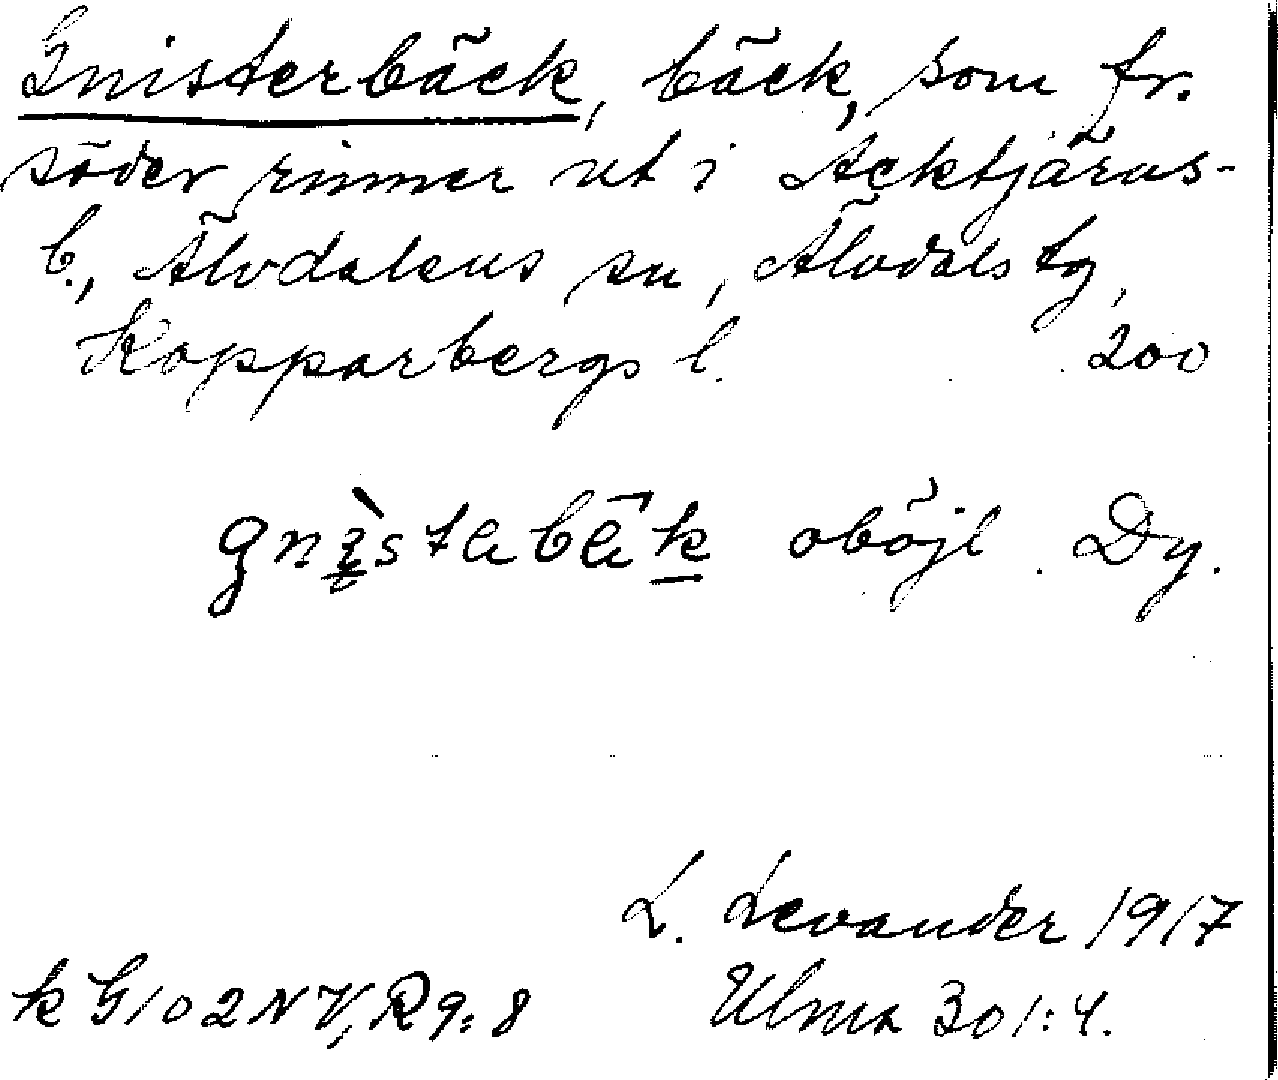 Gnisterbäck, bäck, som fr.
söder rinner ut i Acktjärns-
b., Älvdalens sn, Älvdals tg,
Kopparbergs l. 200
oböjl. Dy.
L. Levander 1917
k G102NV, R9:8 Ulma 301:4.